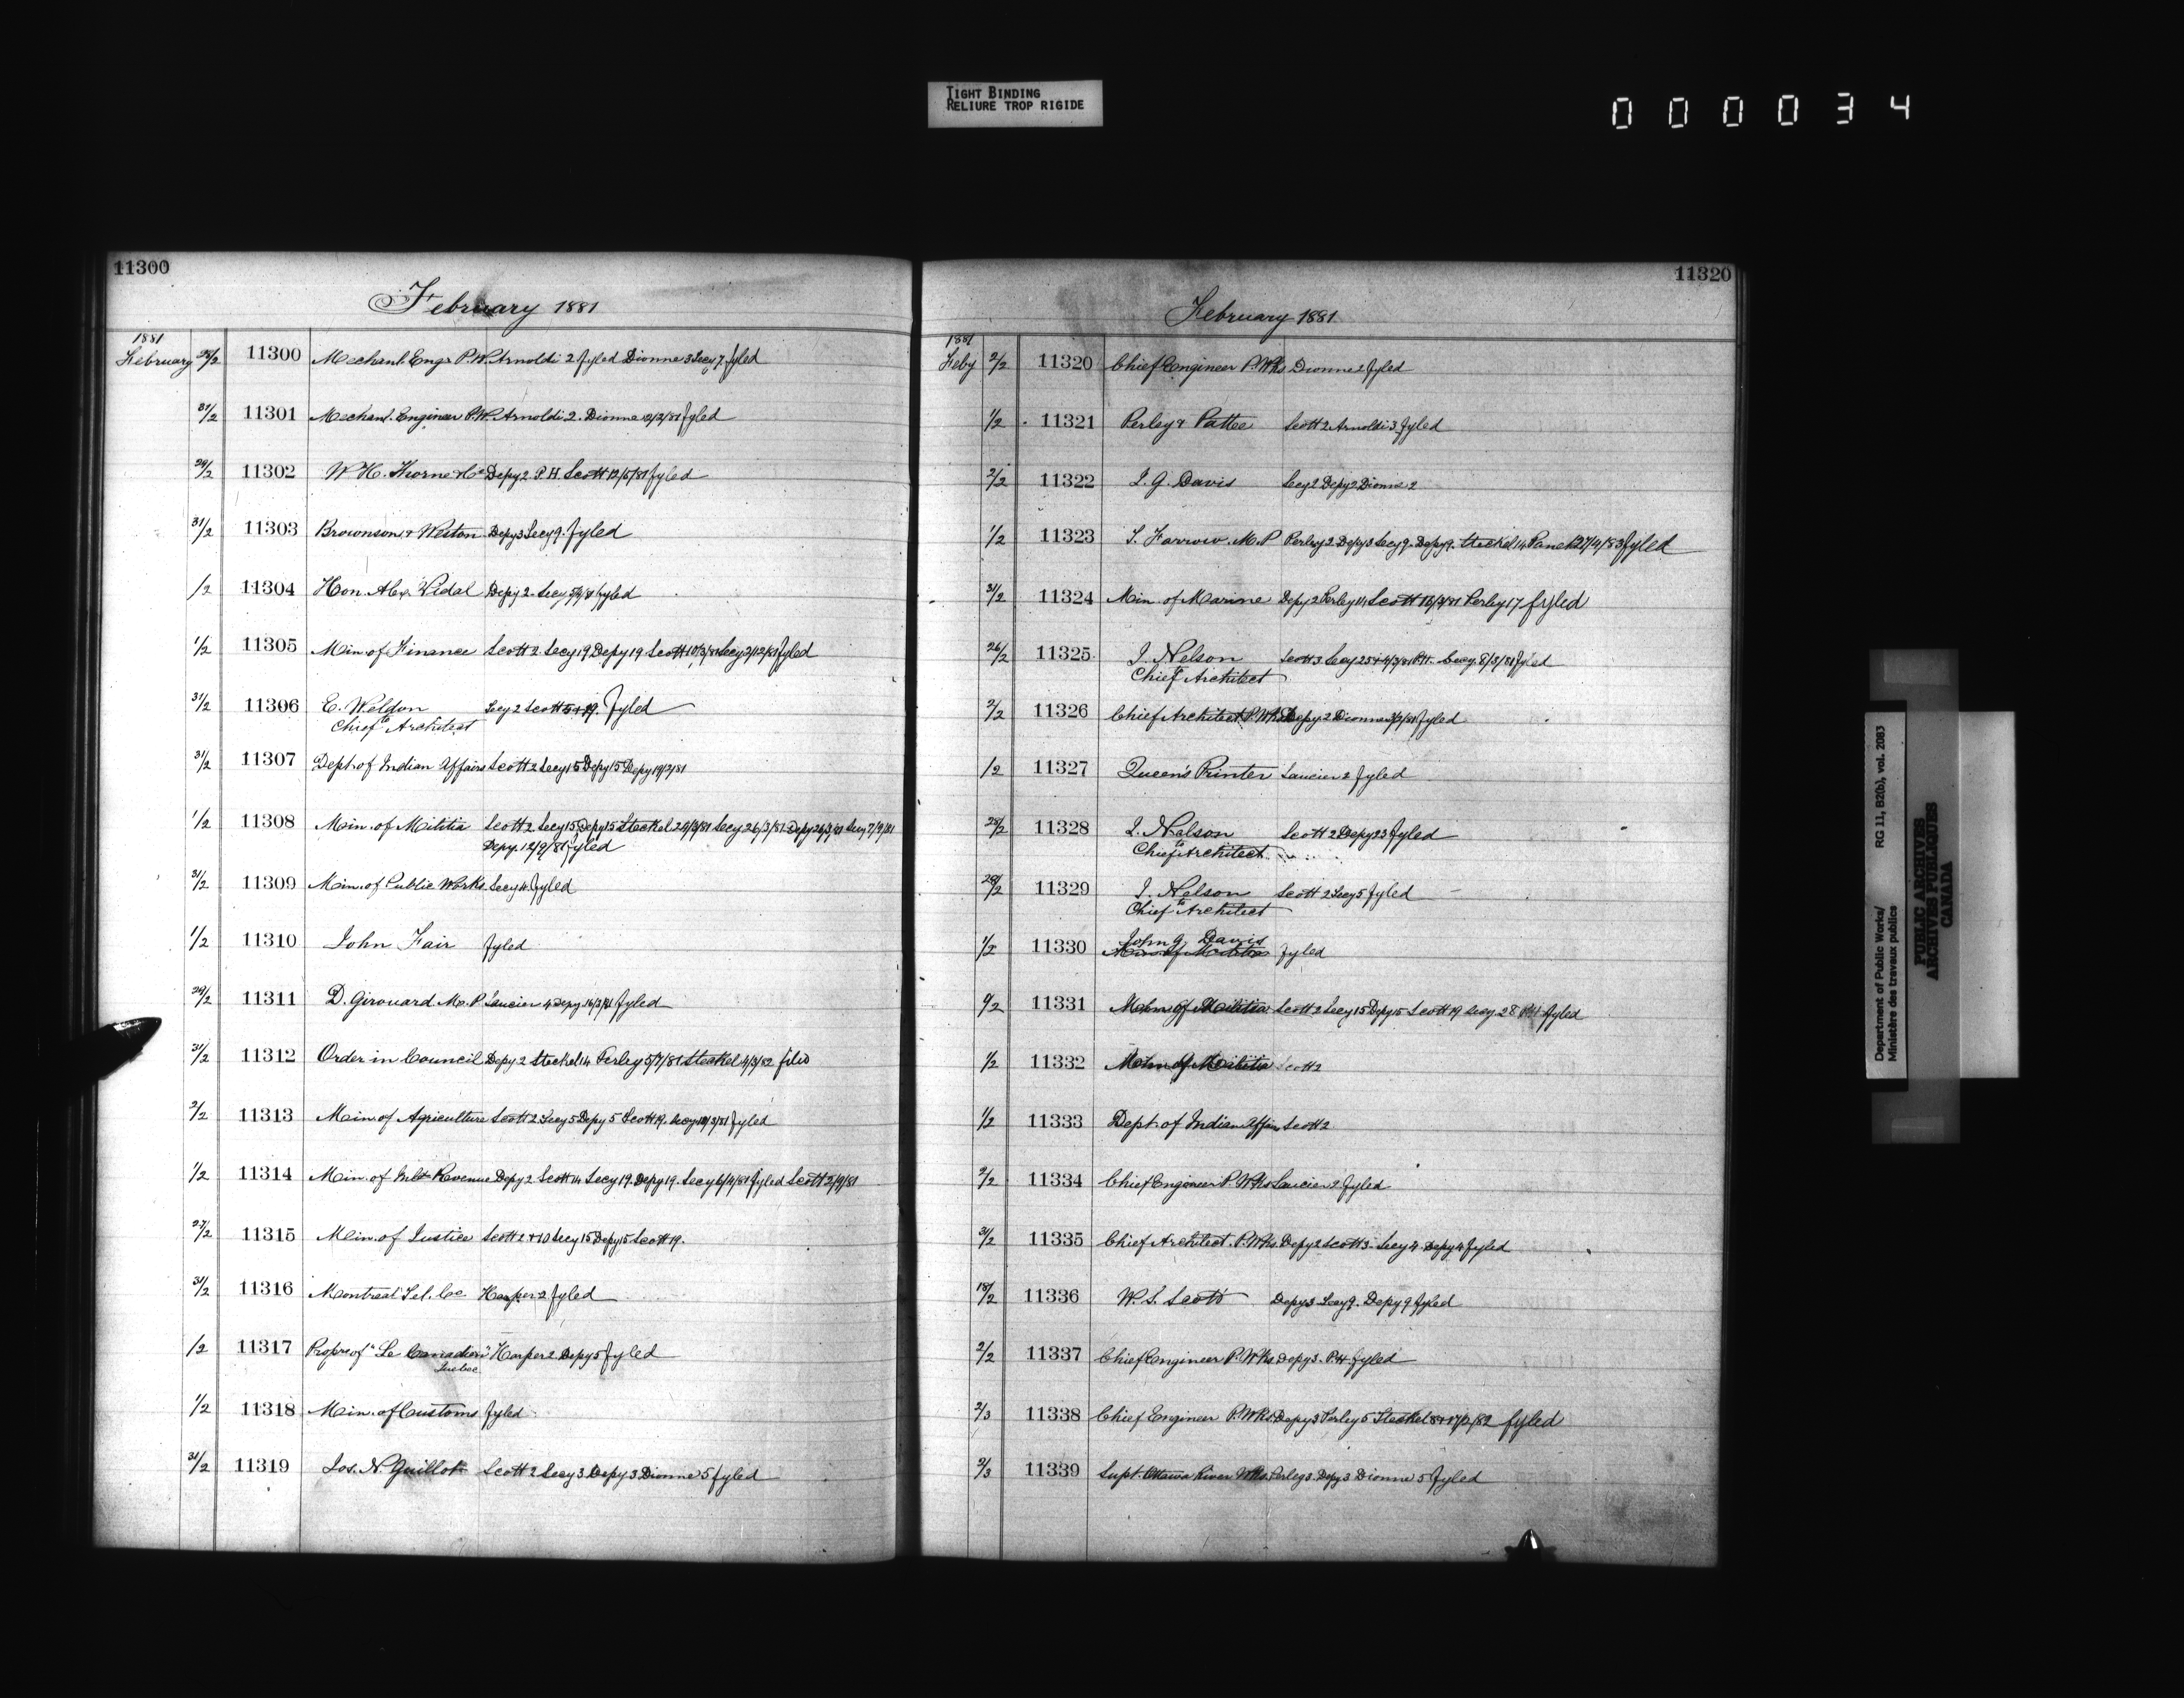 TIGHT BINDING
RELIURE TROP RIGIDE
000034
11300
February 1881
1881
February 28/2 11300 Mechanl. Engr P.W. Arnoldi 2 fyled Dionne 3 Secy 7. fyled
31/2 11301 Mechanl. Engineer P.W. Arnoldi 2. Dionne fyled
29/2 11302 W. H. Thorne & Co Depy 2 P.H. Scott 12/5/81 fyled
31/2 11303 Bronson & Weston Depy 3 Secy 9. fyled
/2 11304 Hon. Alex. Vidal Depy 2. Secy fyled
1/2 11305 Min. of Finance Scott 2 Secy 19 Depy 19 Scott 10/3/81 Secy 2/12/81 fyled
31/2 11306 E. Weldon Secy 2 Scott 5+19. fyled
to Chief Architect
31/2 11307 Dept. of Indian Affairs Scott 2 Secy 15 Depy 15 Depy 19/2/81
1/2 11308 Min. of Militia Scott 2. Secy 15 Depy 15 Steckel Secy 26/3/81 Depy 26/3/81 Secy 7/9/81
Depy. 12/9/81 fyled
31/2 11309 Min. of Public Works. Secy 4. fyled
1/2 11310 John Fair fyled
29/2 11311 D. Girouard M.P. Saucier 4 Depy. 16/3/81 fyled
31/2 11312 Order in Council Depy 2 Steckel 14 Perley 5/7/81 Steckel 4/3/82 filed
2/2 11313 Min. of Agriculture Scott 2 Secy 5 Depy 5 Scott 19. Secy fyled
1/2 11314 Min. of Inld Revenue Depy 2 Scott 14 Secy 19. Depy 19. Secy 6/4/81 fyled Scott 2/9/81
27/2 11315 Min. of Justice Scott 2+10 Secy 15 Depy 15 Scott 19.
31/2 11316 Montreal Tel. Co. Harper 2 fyled
/2 11317 Proprs of "Le Canadien" Harper 2 Depy 5 fyled
Quebec
1/2 11318 Min. of Customs fyled
31/2 11319 Jos. N. Guillot Scott 2 Secy 3 Depy 3 Dionne 5 fyled
11320
February 1881
1881
Feby 2/2 11320 Chief Engineer P. Wks Dionne 2 fyled
1/2 11321 Perley & Pattee Scott 2 Arnoldi 3 fyled
2/2 11322 J. G. Davis Secy 2 Depy 2 Dionne 2
1/2 11323 T. Farrow. M.P. Perley 2 Depy 3 Secy 9. Depy 9. Steckel 14 Panet 27/4/83 fyled
31/2 11324 Min. of Marine Depy 2 Perley 14 Scott 16/3/81 Perley 17 fyled
26/2 11325 J. Nelson Scott 3 Secy 25 P.H. Secy. 8/3/81 fyled
to Chief Architect
2/2 11326 Chief Architect P. Wks Depy 2 Dionne fyled
/2 11327 Queen's Printer Saucier 2 fyled
28/2 11328 J. Nelson Scott 2 Depy 23 fyled
to Chief Architect
28/2 11329 J. Nelson Scott 2 Secy 5 fyled
to Chief Architect
John G. Davis
1/2 11330 Min. of Militia fyled
11331 Min. of Militia Scott 2 Secy 15 Depy 15 Scott 19 Secy 28 fyled
1/2 11332 Min. of Militia Scott 2
1/2 11333 Dept. of Indian Affairs Scott 2
2/2 11334 Chief Engineer P. Wks Saucier 2. fyled
31/2 11335 Chief Architect. P. Wks. Depy 2 Scott 3. Secy 4. Depy 4 fyled
18/2 11336 W. S. Scott Depy 3 Secy 9. Depy 9 fyled
2/2 11337 Chief Engineer P. Wks Depy 3. P.H. fyled
2/3 11338 Chief Engineer P. Wks. Depy 3 Perley 5 Steckel fyled
2/3 11339 Supt. Ottawa River Wks. Perley 3. Depy 3 Dionne 5 fyled
Department of Public Works/
Ministère des travaux publics
RG 11, B2(b), vol. 2083
PUBLIC ARCHIVES
ARCHIVES PUBLIQUES
CANADA